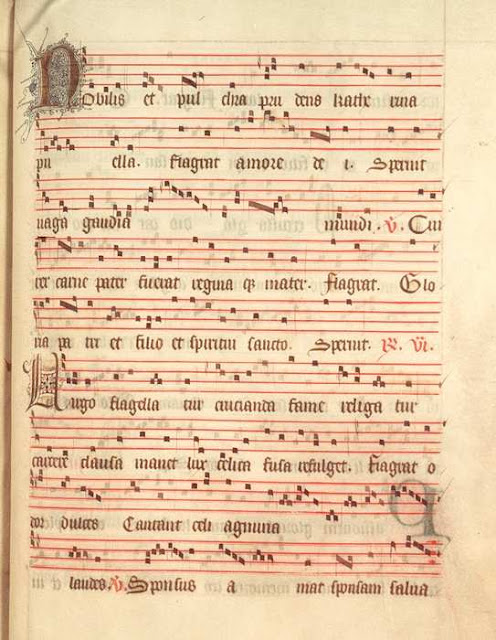 Nobilis et pul chra pru dens kathe rina
pu ella. flagrat amore de i. Spernit
uaga gaudia mundi. V. Cui
rex carne pater fuerat regina q3 mater. flagrat. Glo
ria pa tri et filio et spiritui sancto. Spernit. R. VI.
Uirgo flagella tur crucianda fame religa tur
carcere clausa manet lux celica fusa refulget. flagrat o
dor dulces Cantant celi agmina
laudes. V. Sponsus a mat sponsam salua